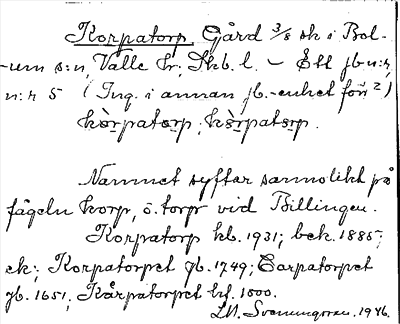 Korpatorp. Gård 3/8 sk i Bol-
-um s:n, Valle hr. Skb. l. – Ett jb-n:r,
n:r 5 (Ing. i annan jb.-enhet förr 2)
kòrpatorp, kòrpatorp.
Namnet syftar sannolikt på
fågeln korp, ö. torp vid Billingen.
Korpatorp kb. 1931; bek. 1885;
ek; Korpatorpet jb. 1749; Carpatorpet
jb. 1651; Kårpatorpet 1600.
Svenungsson. 1946.